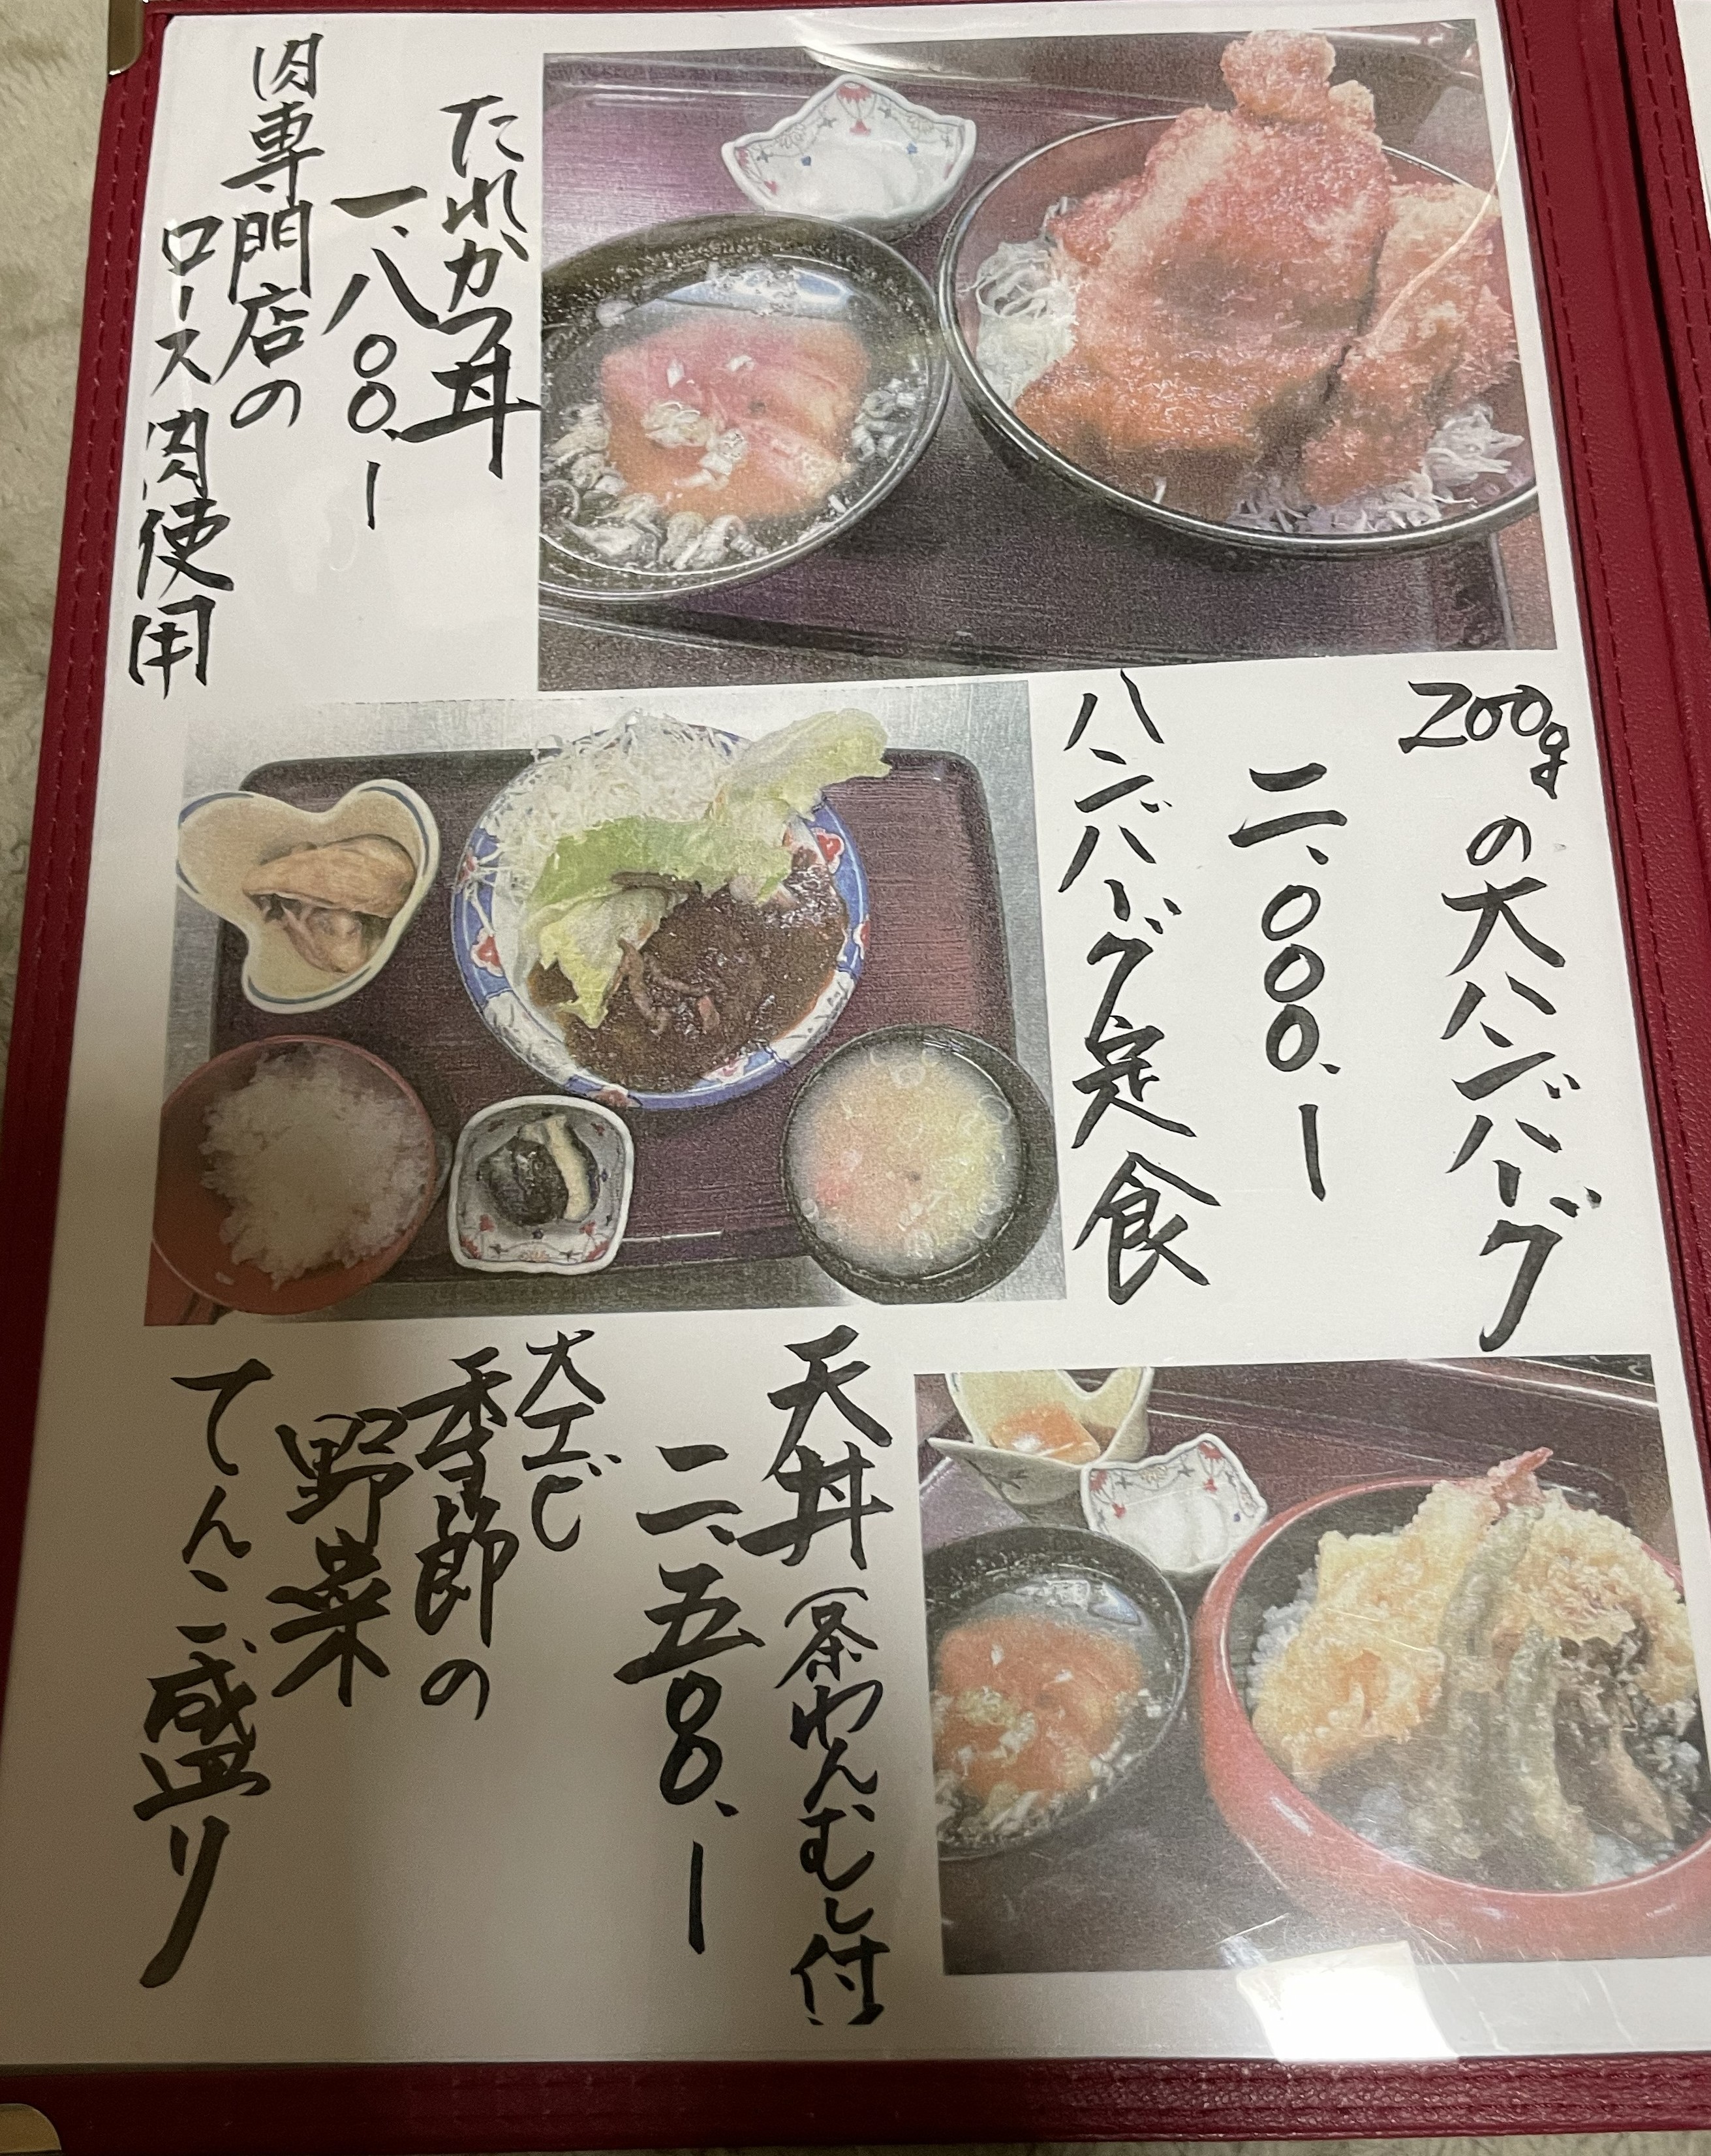 たれかつ丼
一、八〇〇、ー
肉専門店の
ロース肉使用
200gの大ハンバーグ
二、〇〇〇、ー
ハンバーグ定食
天丼(茶わんむし付)
二、五〇〇、ー
大エビ
季節の
野菜
てんこ盛り